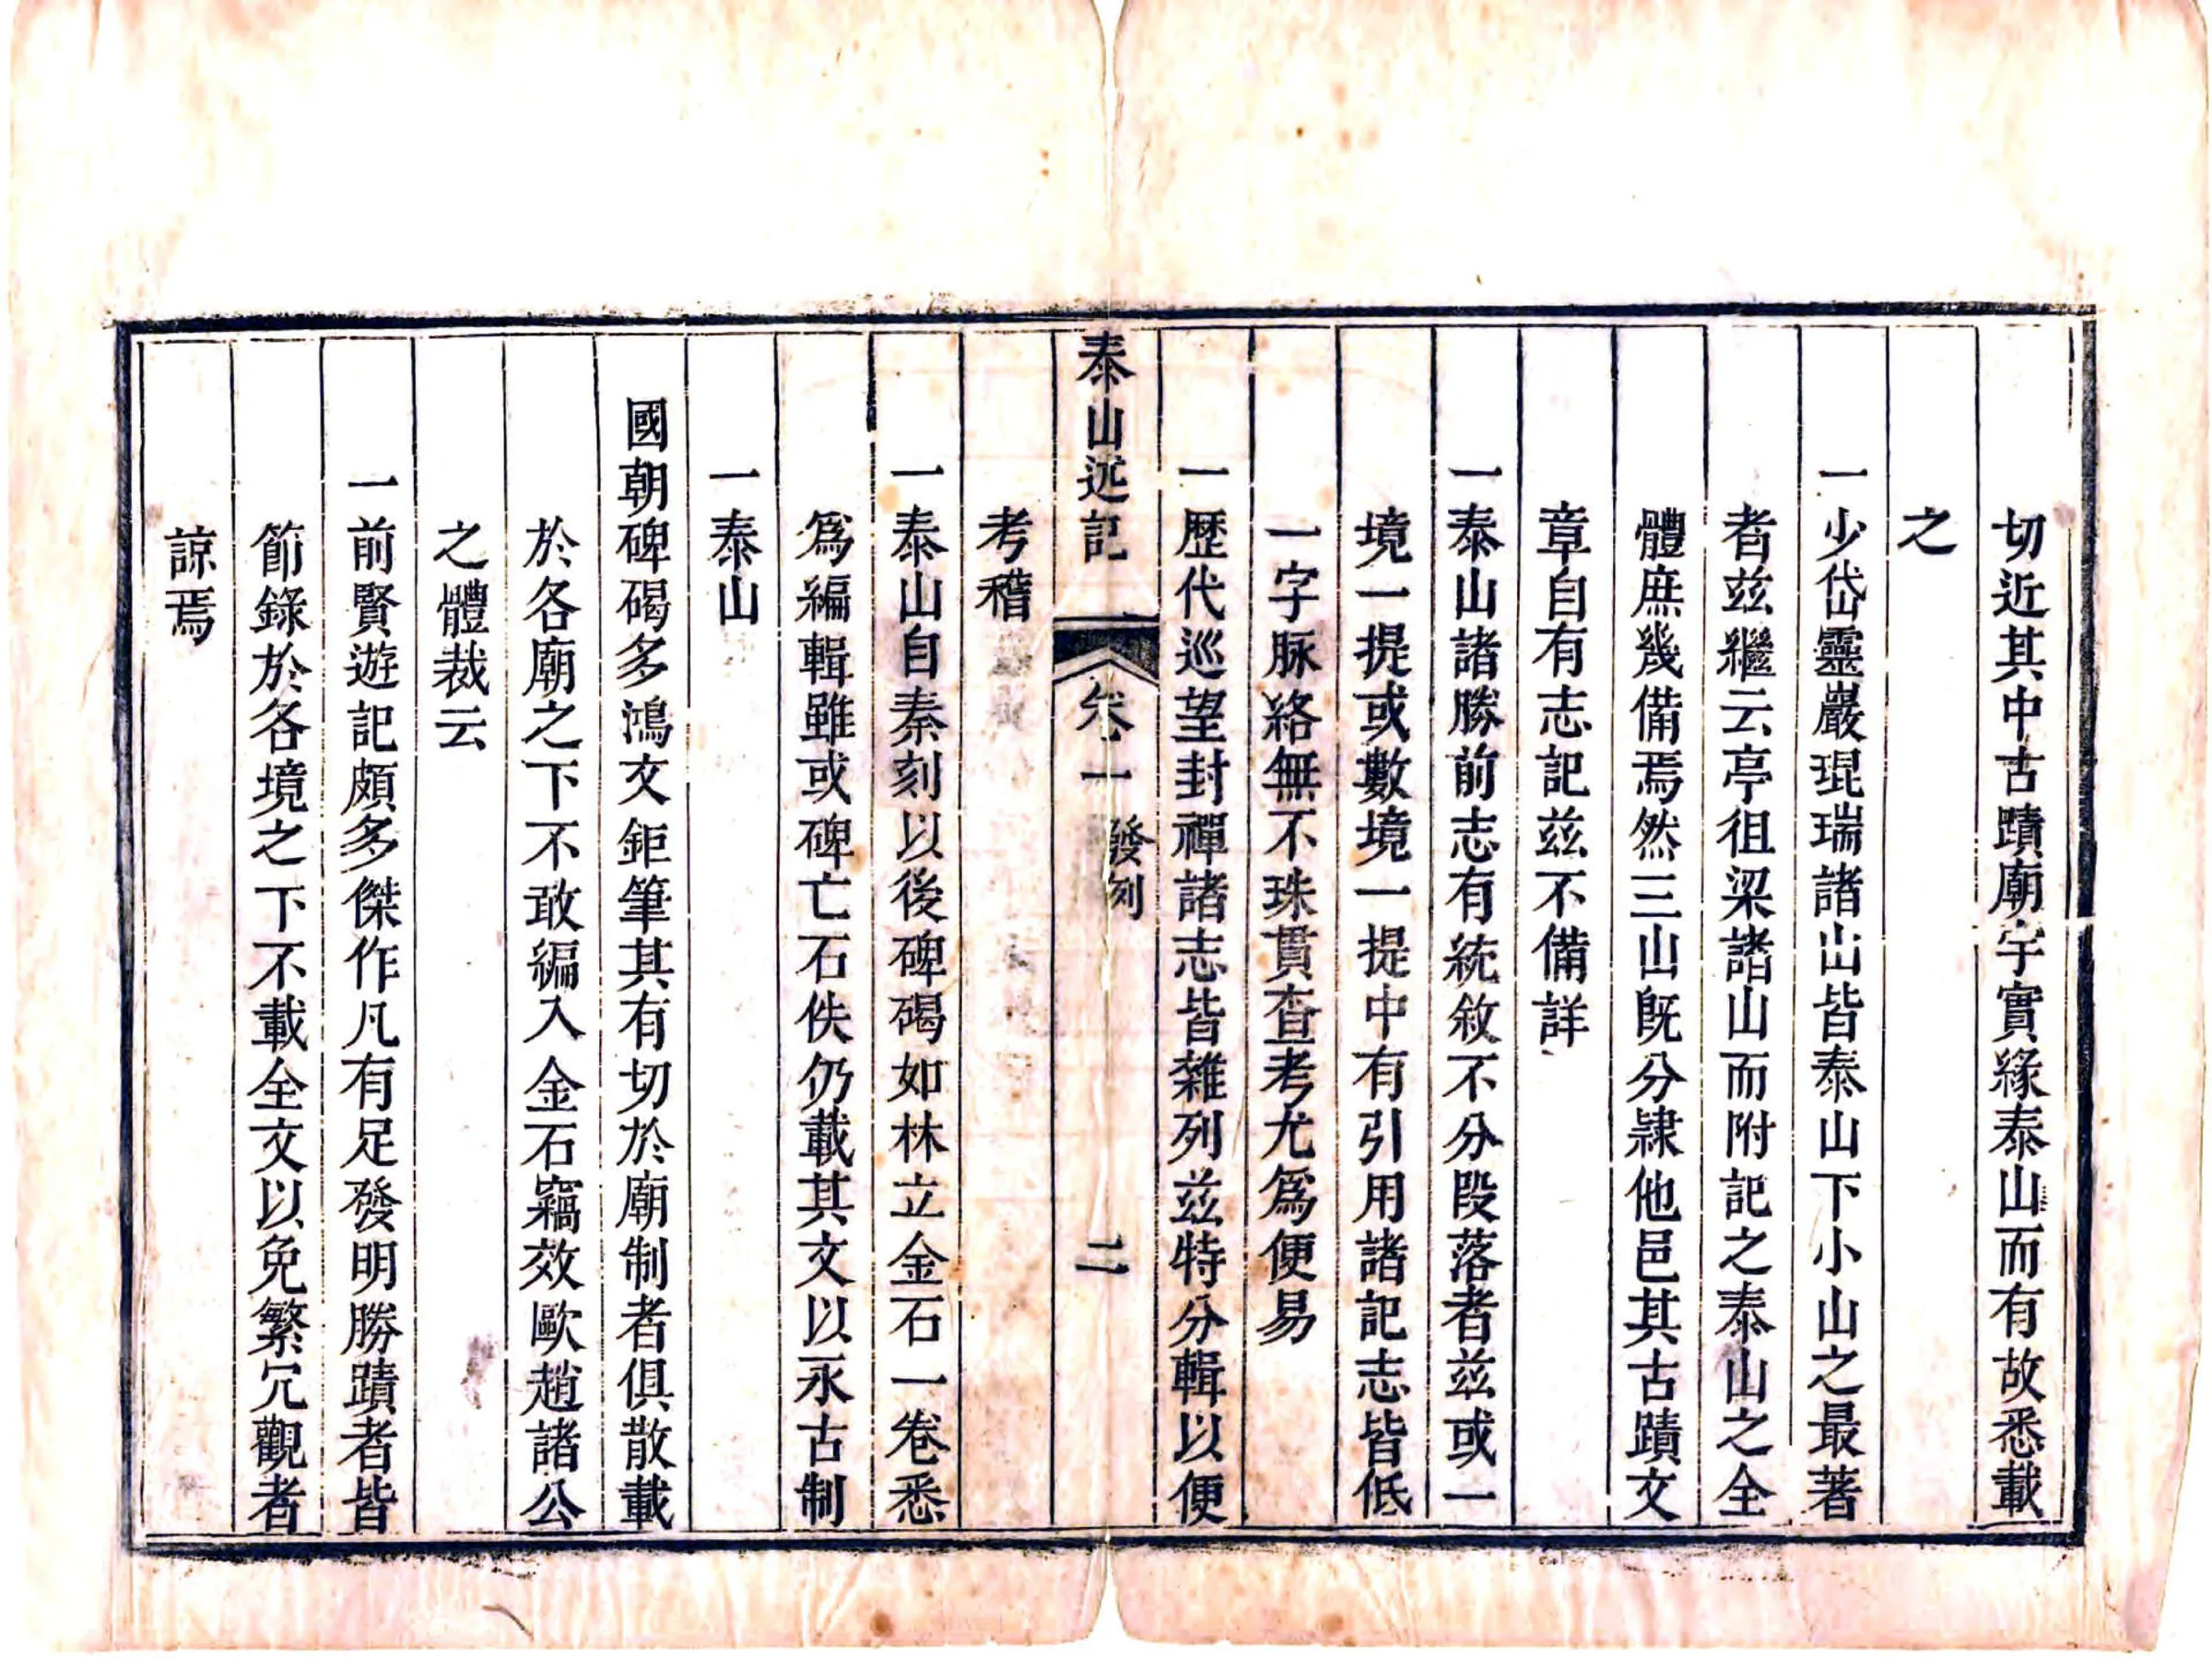 切近其中古蹟廟宇實緣泰山而有故悉載
之
一少岱靈巖琨瑞諸山皆泰山下小山之最著
者茲繼云亭徂梁諸山而附記之泰山之全
體庶幾備焉然三山旣分隷他邑其古蹟文
章自有志記茲不備詳
一泰山諸勝前志有統敘不分段落者茲或一
境一提或數境一提中有引用諸記志皆低
一字脉絡無不珠貫查考尤爲便易
一歷代巡望封禪諸志皆雜列茲特分輯以便
泰山述記
卷一
發列
二
考稽
一泰山自秦刻以後碑碣如林立金石一卷悉
爲編輯雖或碑亡石佚仍載其文以永古制
一泰山
國朝碑碣多鴻文鉅筆其有切於廟制者俱散載
於各廟之下不敢編入金石竊效歐趙諸公
之體裁云
一前賢遊記頗多傑作凡有足發明勝蹟者皆
節錄於各境之下不載全文以免繁冗觀者
諒焉